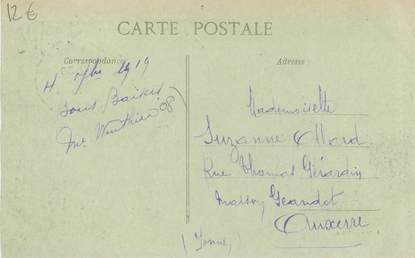 12€
CARTE POSTALE
Correspondance
Adresse
1919
Bons Baisers
Mademoiselle
Suzanne Allard
Rue Thomas Girardin
Maison
Auxerre
(Yonne)